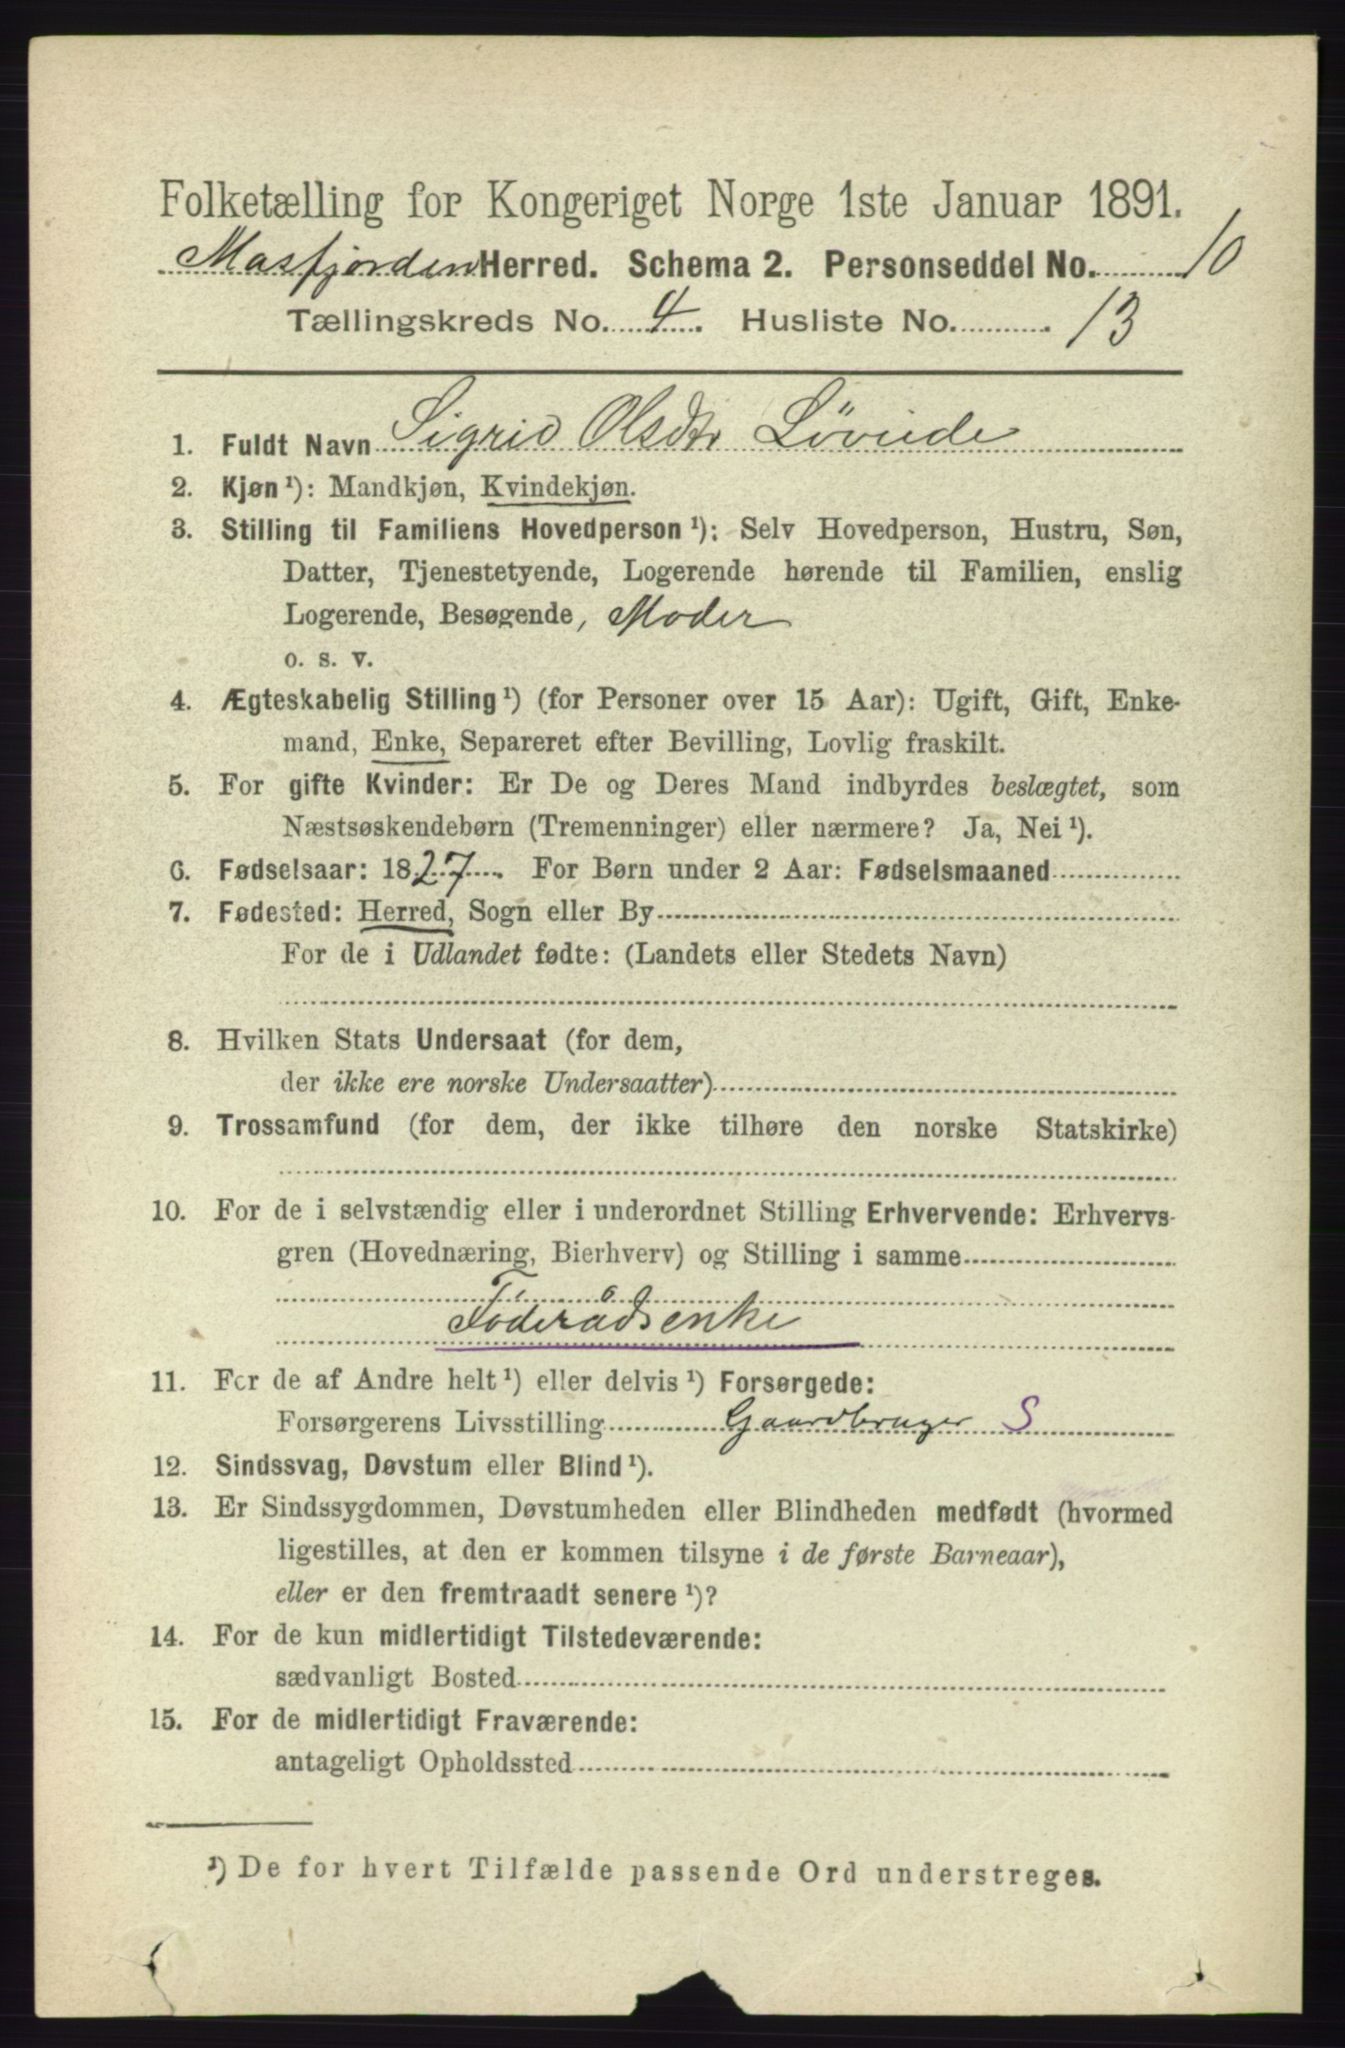 Folketælling for Kongeriget Norge 1ste Januar 1891.
Masfjorden Herred. Schema 2. Personseddel No. 10
Tællingskreds No. 4. Husliste No. 13
1. Fuldt Navn Sigrid Olsdtr Løvlide
2. Kjøn ¹): Mandkjøn, Kvindekjøn.
3. Stilling til Familiens Hovedperson ¹): Selv Hovedperson, Hustru, Søn,
Datter, Tjenestetyende, Logerende hørende til Familien, enslig
Logerende, Besøgende, Moder
o. s. v.
4. Ægteskabelig Stilling ¹) (for Personer over 15 Aar): Ugift, Gift, Enke-
mand, Enke, Separeret efter Bevilling, Lovlig fraskilt.
5. For gifte Kvinder: Er De og Deres Mand indbyrdes beslægtet, som
Næstsøskendebørn (Tremenninger) eller nærmere? Ja, Nei ¹).
6. Fødselsaar: 1827. For Børn under 2 Aar: Fødselsmaaned
7. Fødested: Herred, Sogn eller By
For de i Udlandet fødte: (Landets eller Stedets Navn)
8. Hvilken Stats Undersaat (for dem,
der ikke ere norske Undersaatter)
9. Trossamfund (for dem, der ikke tilhøre den norske Statskirke)
10. For de i selvstændig eller i underordnet Stilling Erhvervende: Erhvervs-
gren (Hovednæring, Bierhverv) og Stilling i samme
Föderådsenke
11. For de af Andre helt ¹) eller delvis ¹) Forsørgede:
Forsørgerens Livsstilling Gaardbruger S
12. Sindssvag, Døvstum eller Blind ¹).
13. Er Sindssygdommen, Døvstumheden eller Blindheden medfødt (hvormed
ligestilles, at den er kommen tilsyne i de første Barneaar),
eller er den fremtraadt senere ¹)?
14. For de kun midlertidigt Tilstedeværende:
sædvanligt Bosted
15. For de midlertidigt Fraværende:
antageligt Opholdssted
¹) De for hvert Tilfælde passende Ord understreges.